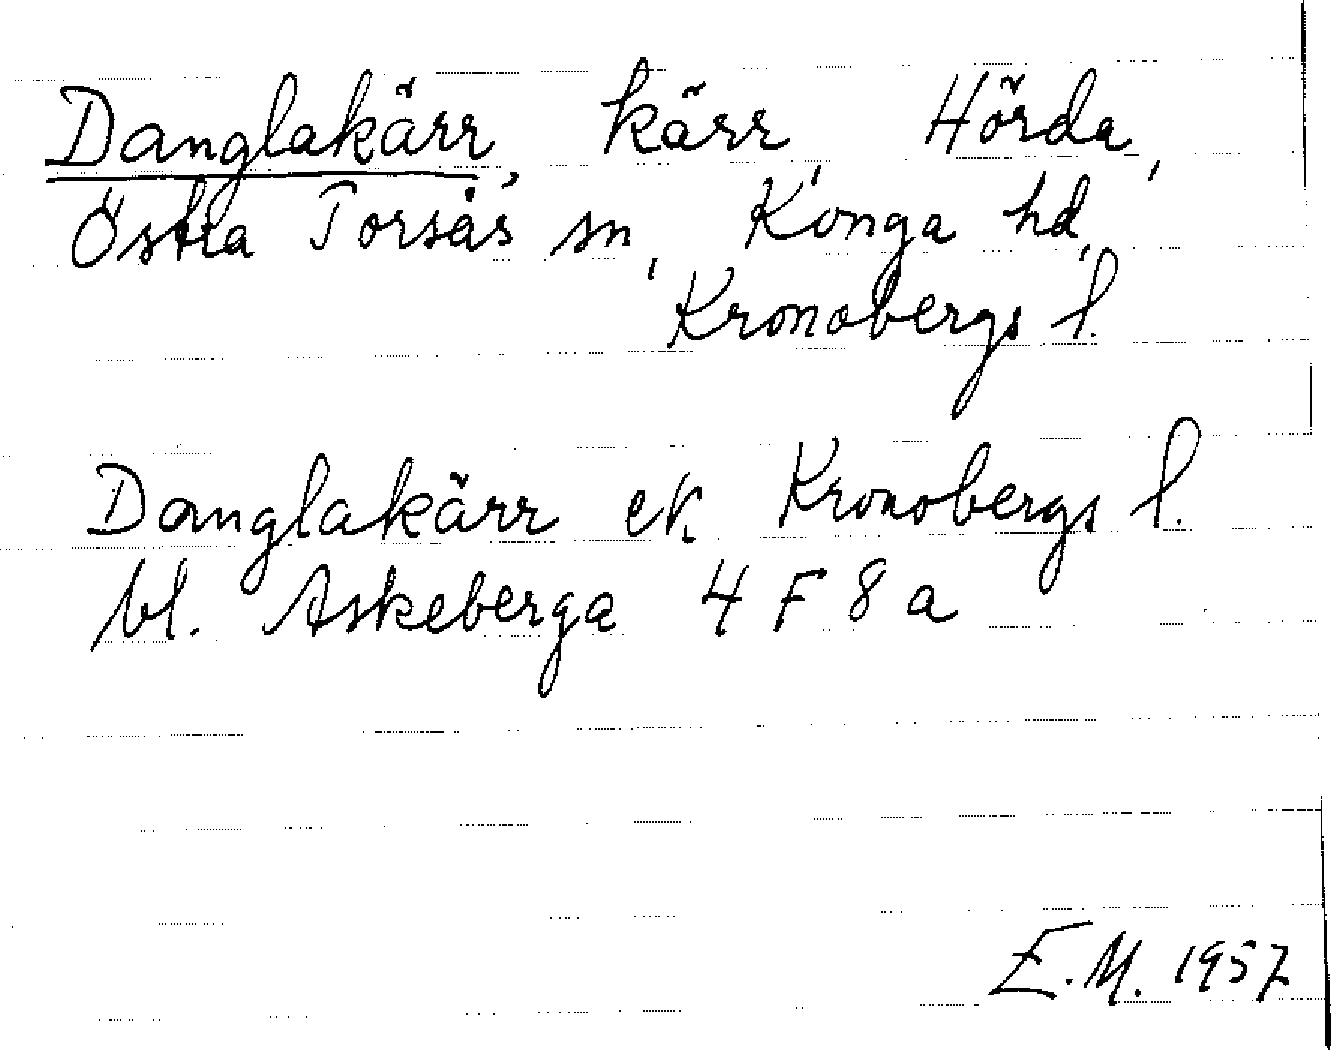 Danglakärr, kärr, Hörda,
Östra Torsås sn, Konga hd,
Kronobergs l.
Danglakärr ek. Kronobergs l.
bl. Askeberga 4 F 8 a
E.M. 1957